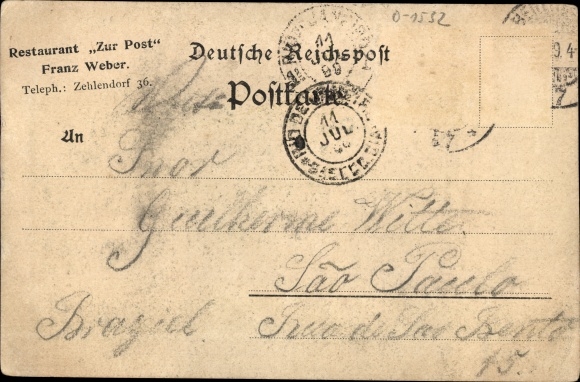 D-1532
Restaurant „Zur Post"
Franz Weber.
Teleph.: Zehlendorf 36.
Deutsche Reichspost
Postkarte
11
JUL
An
Snor
Guilherme Witte
São Paulo
Braziel
Rua de Sao Bento
15.